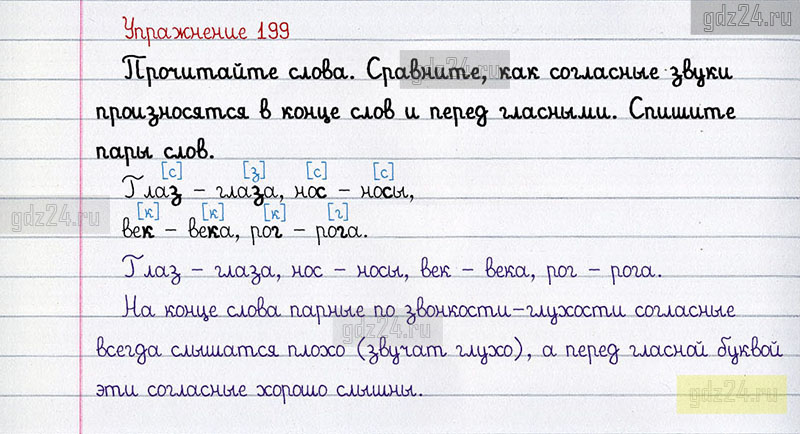 gdz24.ru
Упражнение 199
Прочитайте слова. Сравните, как согласные звуки
gdz24.ru
произносятся в конце слов и перед гласными. Спишите
пары слов.
[с] [з] [с] [с]
Глаз – глаза, нос – носы,
[к] [к] [к] [г]
gdz24.ru
век – века, рог – рога.
Глаз – глаза, нос – носы, век – века, рог – рога.
На конце слова парные по звонкости-глухости согласные
gdz24.ru
всегда слышатся плохо (звучат глухо), а перед гласной буквой
эти согласные хорошо слышны.
gdz24.ru